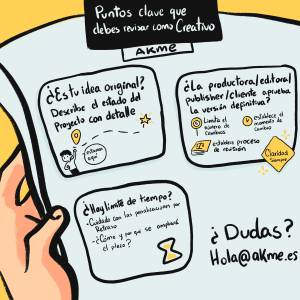 Puntos clave que
debes revisar como Creativo
AKME
¿Es tu idea original?
Describe el estado del
Proyecto con detalle
estamos
aquí
¿La productora/editorial
publisher/cliente aprueba
la versión definitiva?
Limita el
número de
cambios
establece el
momento de
cambios
establece proceso
de revisión
Claridad
siempre
¿Hay límite de tiempo?
- Cuidado con las penalizaciones por
Retraso
- ¿Cómo y por qué se ampliará
el plazo?
¿Dudas?
Hola@akme.es